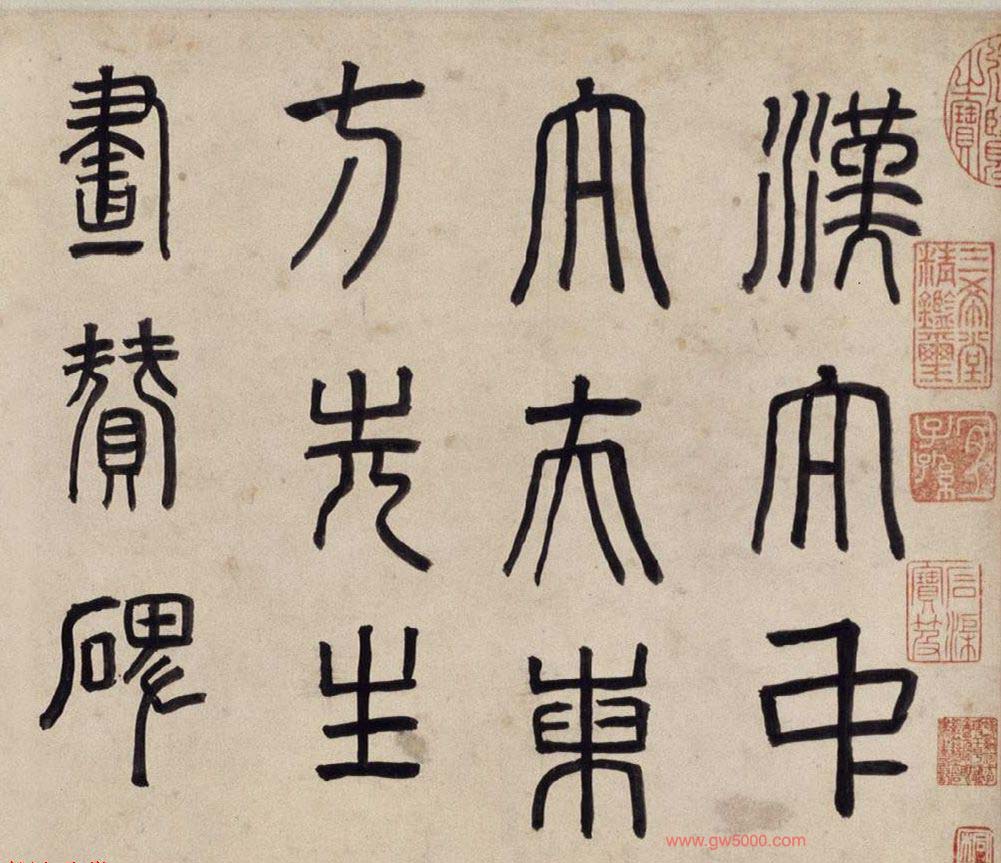 三希堂精鑑璽
宜子孫
石渠寶笈
漢大中
大夫東
方先生
畫贊碑
www.gw5000.com